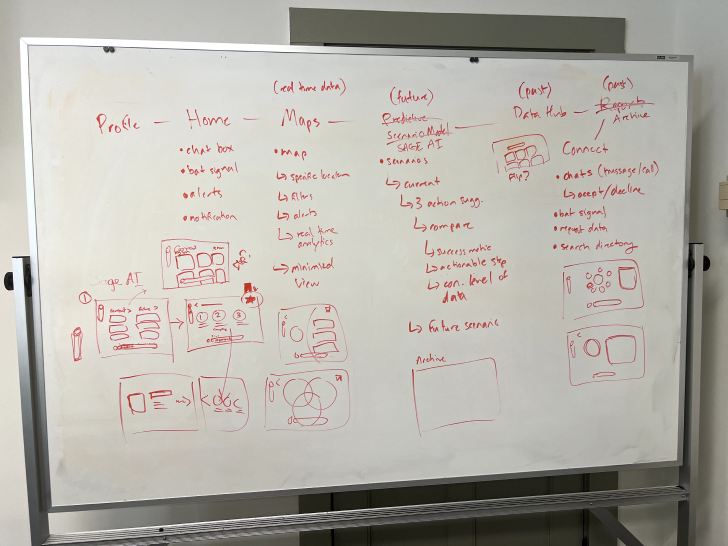 (real time data)
(future)
(past)
(past)
Profile — Home — Maps
Predictive
Scenario Model
SAGE AI
Data Hub
Report
Archive
• chat box
• bat signal
• alerts
• notification
• map
↳ specific location
↳ filters
↳ alerts
↳ real time
analytics
↳ minimized
view
• scenarios
↳ current
↳ 3 action sugg.
↳ compare
↳ success metric
↳ actionable step
↳ con. level of
data
↳ future scenario
Flip?
Connect
• chats (message/call)
↳ accept/decline
• bat signal
• request data
• search directory
Sage AI
①
current >
future >
1 2 3
Archive